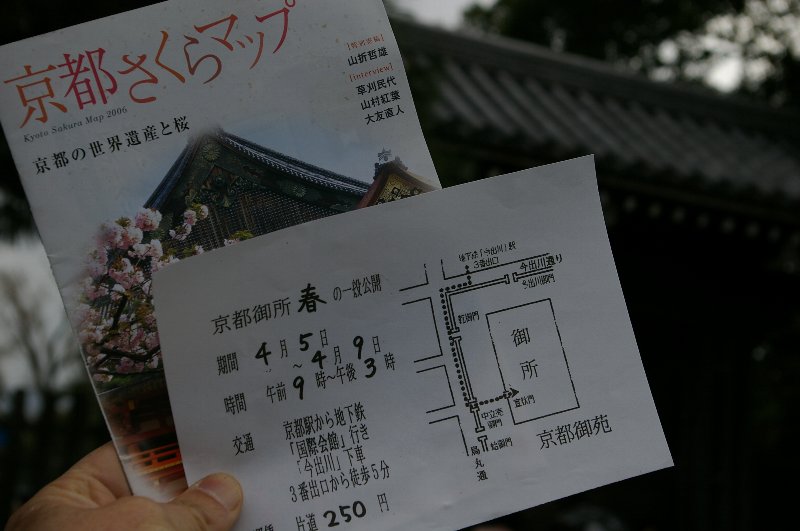 京都さくらマップ
Kyoto Sakura Map 2006
京都の世界遺産と桜
【特別寄稿】
山折哲雄
【Interview】
草刈民代
山村紅葉
大友直人
京都御所 春 の一般公開
期間 4月5日
～4月9日
時間 午前9時～午後3時
交通 京都駅から地下鉄
「国際会館」行き
「今出川」下車
3番出口から徒歩5分
片道250円
地下鉄「今出川」駅
3番出口
今出川通り
今出川御門
乾御門
御所
宜秋門
中立売
御門
蛤御門
烏丸通
京都御苑